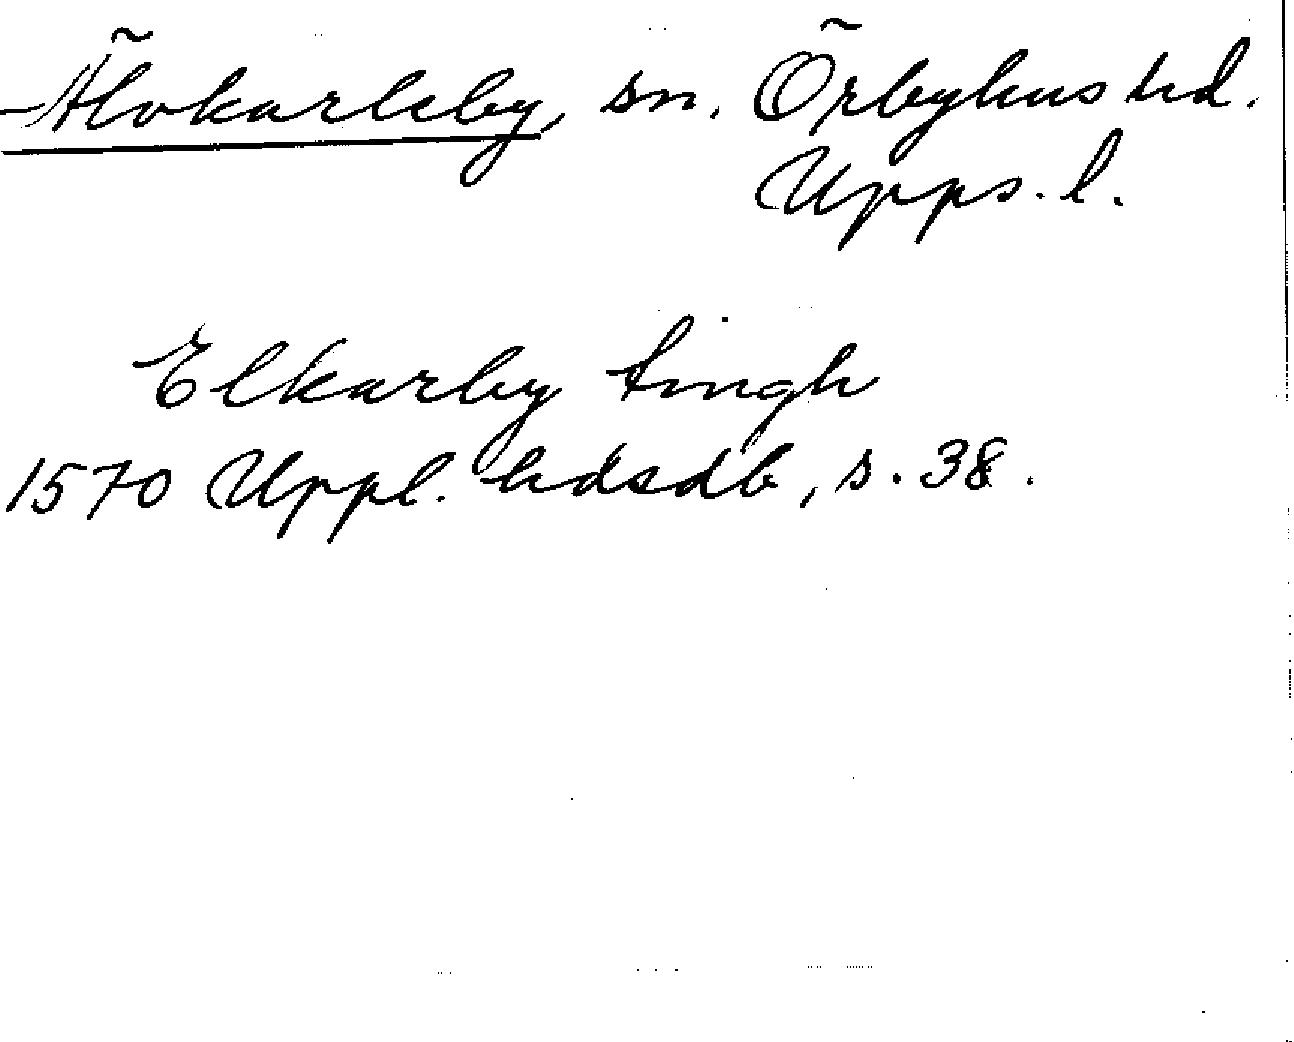 Älvkarleby, sn. Örbyhus hd.
Upps. l.
Elkarby tingh
1570 Uppl. hdsdb, s. 38.